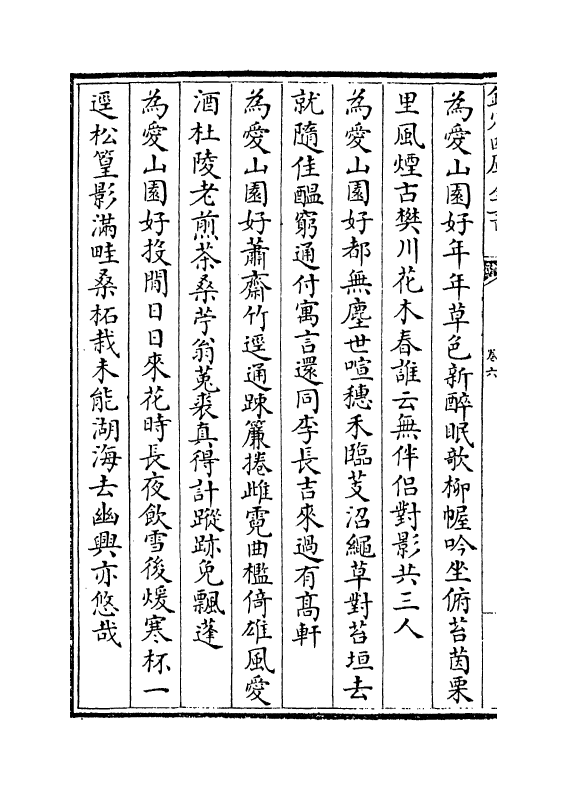 為愛山園好年年草色新醉眠歌柳幄吟坐俯苔茵栗
里風煙古樊川花木春誰云無伴侶對影共三人
為愛山園好都無塵世喧穗禾臨芰沼繩草對苔垣去
就隨佳醞窮通付寓言還同李長吉來過有髙軒
為愛山園好蕭齋竹逕通踈簾捲雌霓曲檻倚雄風愛
酒杜陵老煎茶桑苧翁菟裘真得計蹤跡免飄蓬
為愛山園好投閒日日來花時長夜飲雪後煖寒杯一
逕松篁影滿畦桑柘栽未能湖海去幽興亦悠哉
卷六